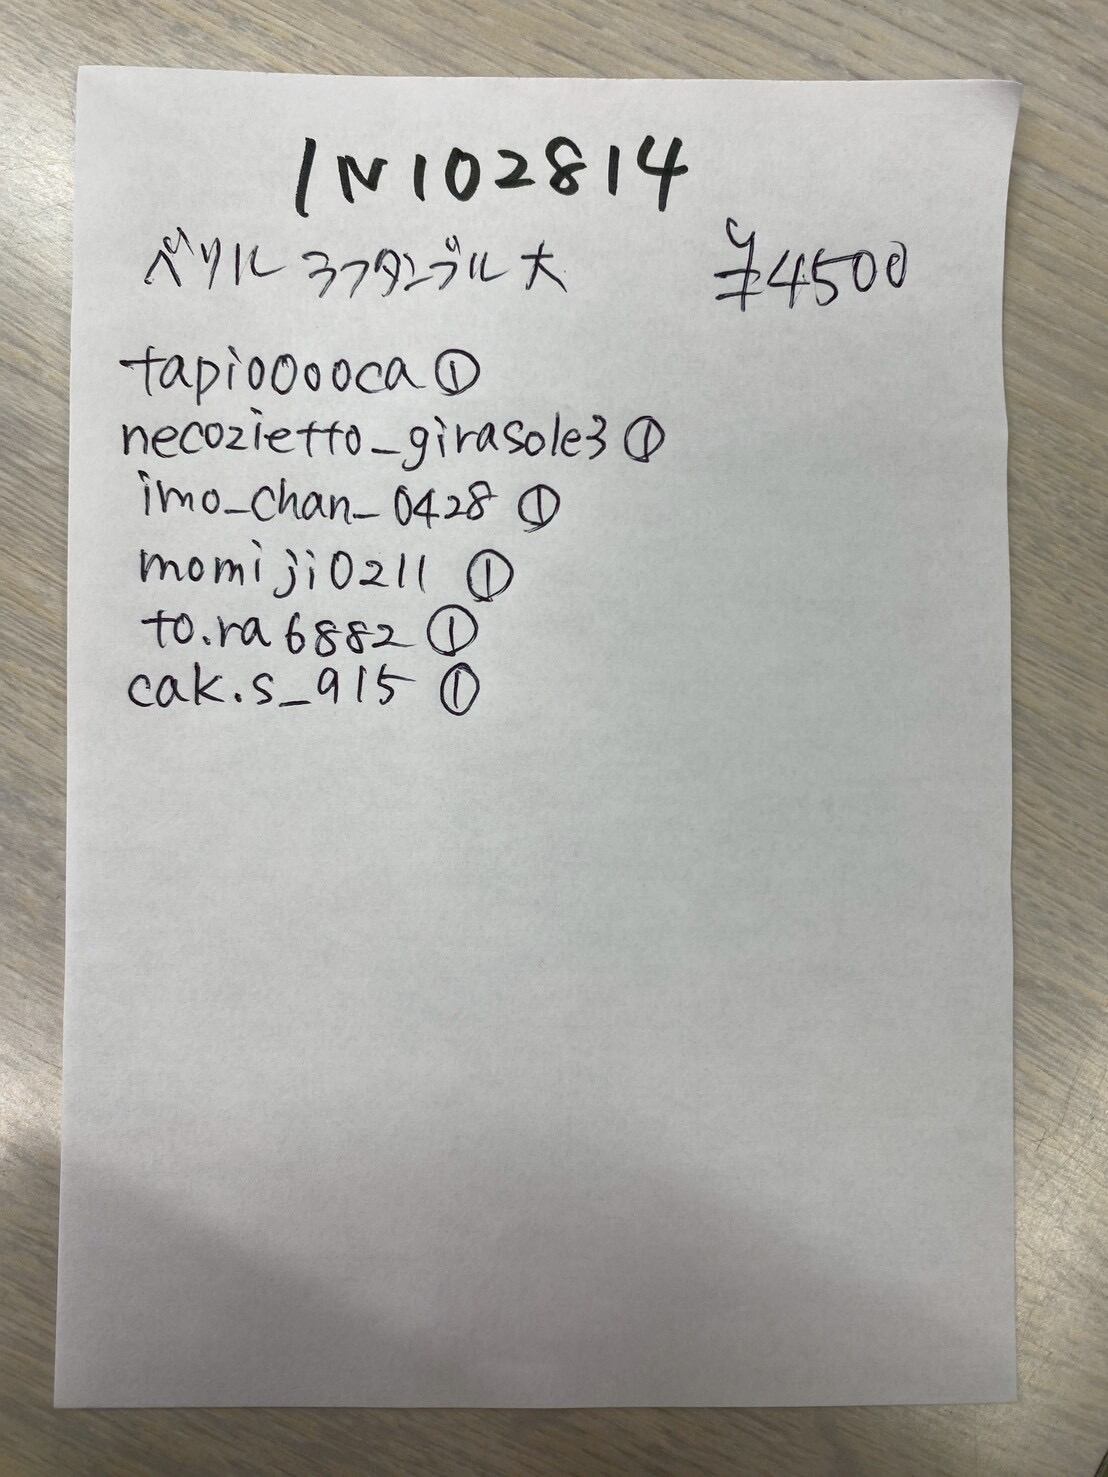 IN102814
ベリル ラフタンブル大 ¥4500
tapiooooca ①
necozietto_girasole3 ①
imo_chan_0428 ①
momiji0211 ①
to.ra6882 ①
cak.s_915 ①